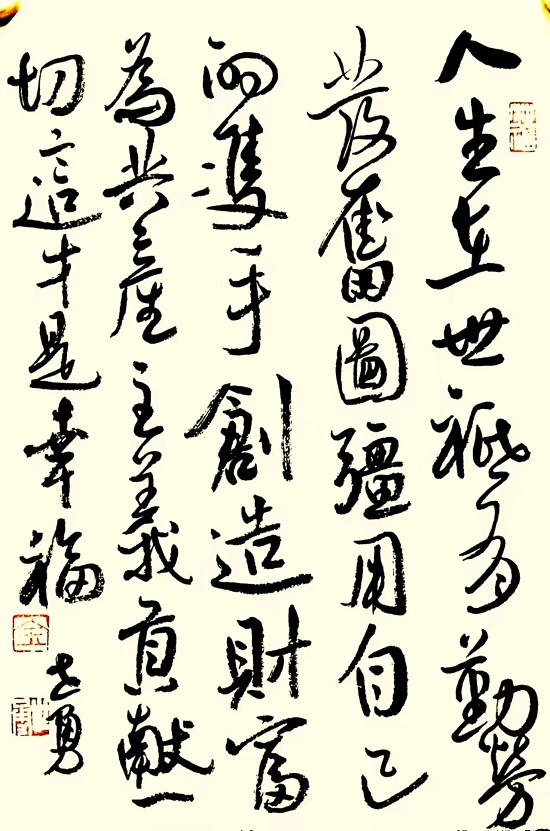 人生在世祇有勤勞
發奮圖彊用自己
的雙手創造財富
為共產主義貢獻一
切這才是幸福
勇